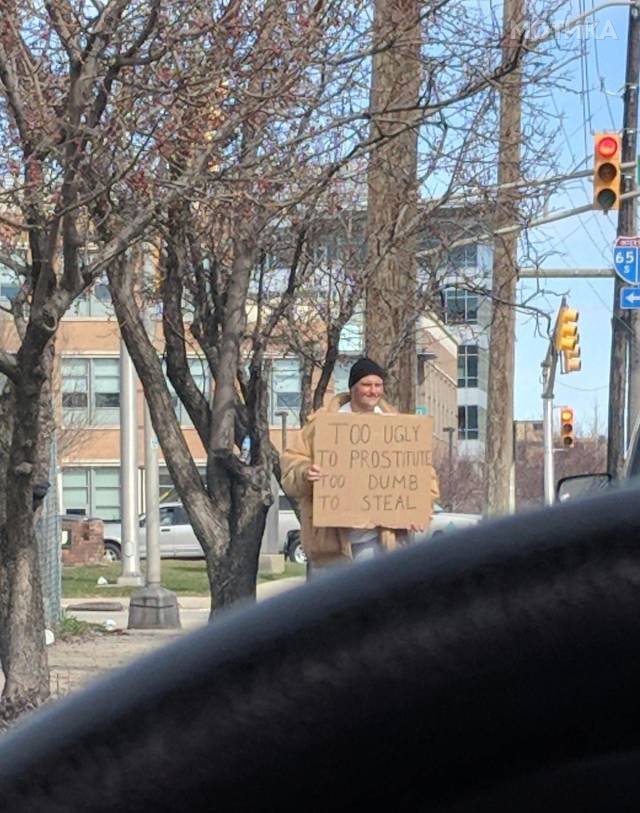 МОТИКА
INTER
65
S
TOO UGLY
TO PROSTITUTE
TOO DUMB
TO STEAL